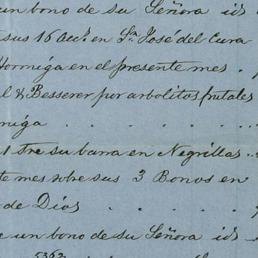 un bono de su Señora id
sus 16 Acc.s en Sn José del Cura
Hormiga en el presente mes.
l & Besserer por arbolitos frutales
miga . . . . .
tre su barra en Negrillas ..
te mes sobre sus 3 Bonos en
de Dios . . . .
e un bono de su Señora id